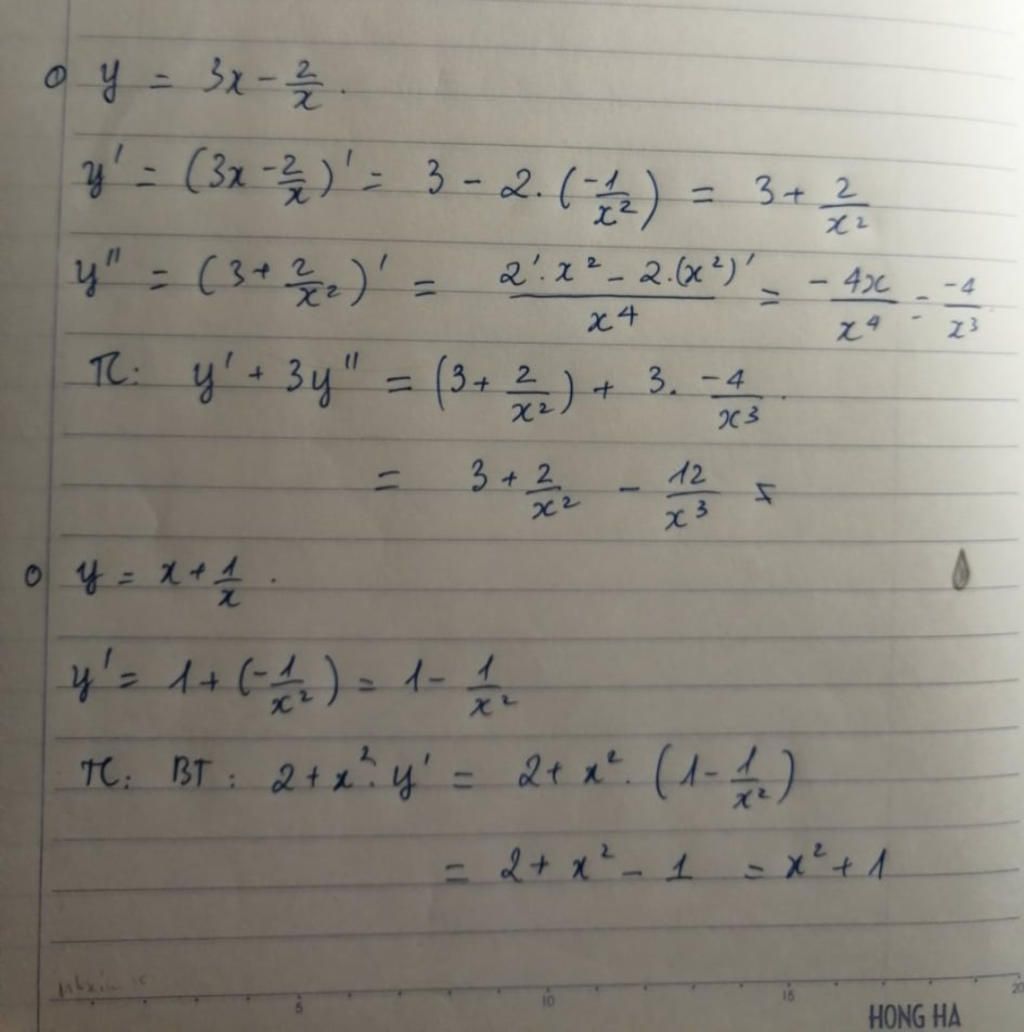 o y = 3x - 2/x.
y' = (3x - 2/x)' = 3 - 2.(-1/x²) = 3 + 2/x²
y'' = (3 + 2/x²)' = (2'.x² - 2.(x²)')/x⁴ = -4x/x⁴ = -4/x³
TC: y' + 3y'' = (3 + 2/x²) + 3. -4/x³.
= 3 + 2/x² - 12/x³
o y = x + 1/x.
y' = 1 + (-1/x²) = 1 - 1/x²
TC: BT: 2 + x².y' = 2 + x².(1 - 1/x²)
= 2 + x² - 1 = x² + 1
5 10 15 20
HONG HA